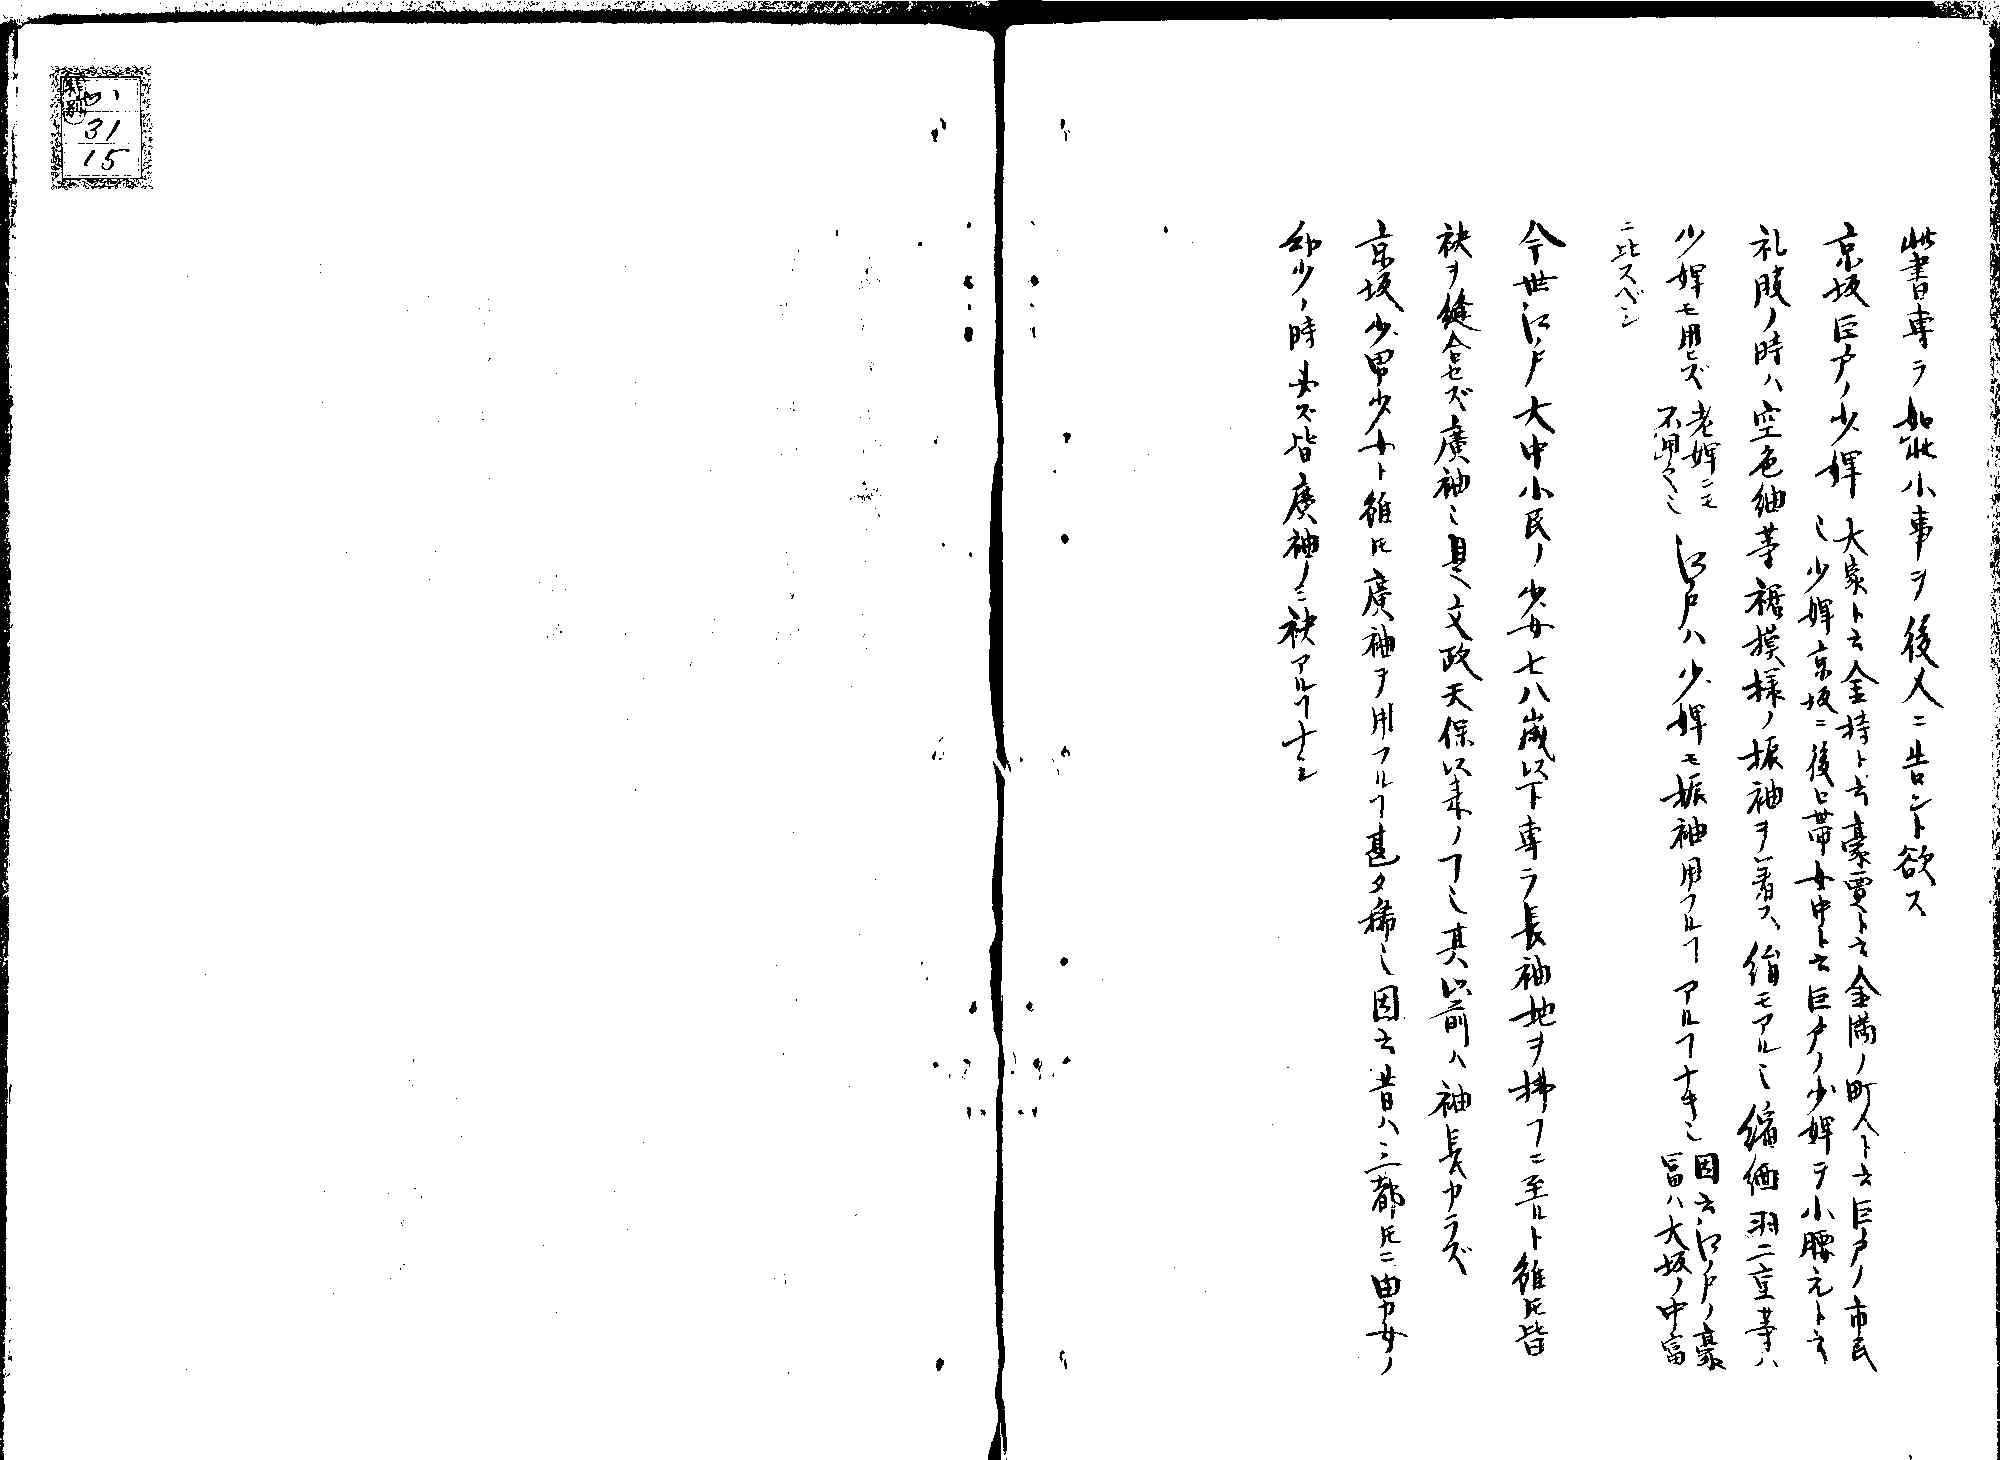 此書専ラ如此小事ヲ後人ニ告ント欲ス
京坂巨戸ノ少婢
大家ト云金持ト云豪賈ト云金満ノ町人ト云巨戸ノ市民
也少婢京坂ニ後ヒ帯女中ト云巨戸ノ少婢ヲ小腰元ト云
礼服ノ時ハ空色紬等裾模様ノ振袖ヲ着ス絹モアル也縮緬羽二重等ハ
少婢モ用ヒズ
老婢ニモ
不用之也
江戸ハ少婢モ振袖用フルヿアルヿナキ也
因云江戸ノ豪
富ハ大坂ノ中富
ニ比スベシ
今世江戸大中小民ノ少女七八歳以下専ラ長袖地ヲ拂フニ至ルト雖𪜈皆
袂ヲ縫合セズ廣袖也是文政天保以来ノヿ也其以前ハ袖長カラズ
京坂少男少女ト雖𪜈廣袖ヲ用フルヿ甚タ稀也因云昔ハ三都𪜈ニ男女ノ
幼少ノ時必ズ皆廣袖ノミ袂アルヿナシ
31
15